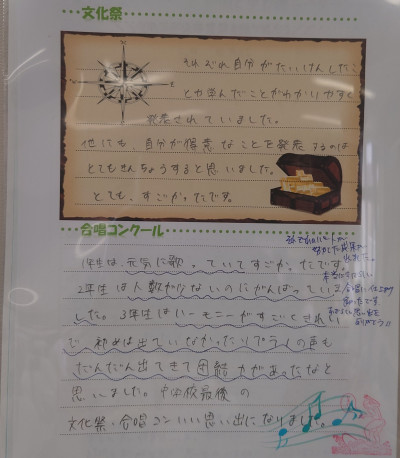 文化祭
それぞれ自分がたいけんしたこ
とや学んだことがわかりやすく
発表されていました。
他にも、自分が得意なことを発表するのは
とてもきんちょうすると思いました。
とても、すごかったです。
合唱コンクール
1年生は、元気に歌っていてすごかったです。
2年生は人数が少ないのにがんばっていま
した。3年生はハーモニーがすごくきれい
で、初めは出ていなかったソプラノの声も
だんだん出てきて団結力があったなと
思いました。中学校最後の
文化祭・合唱コンいい思い出になりました。
それぞれのパートが